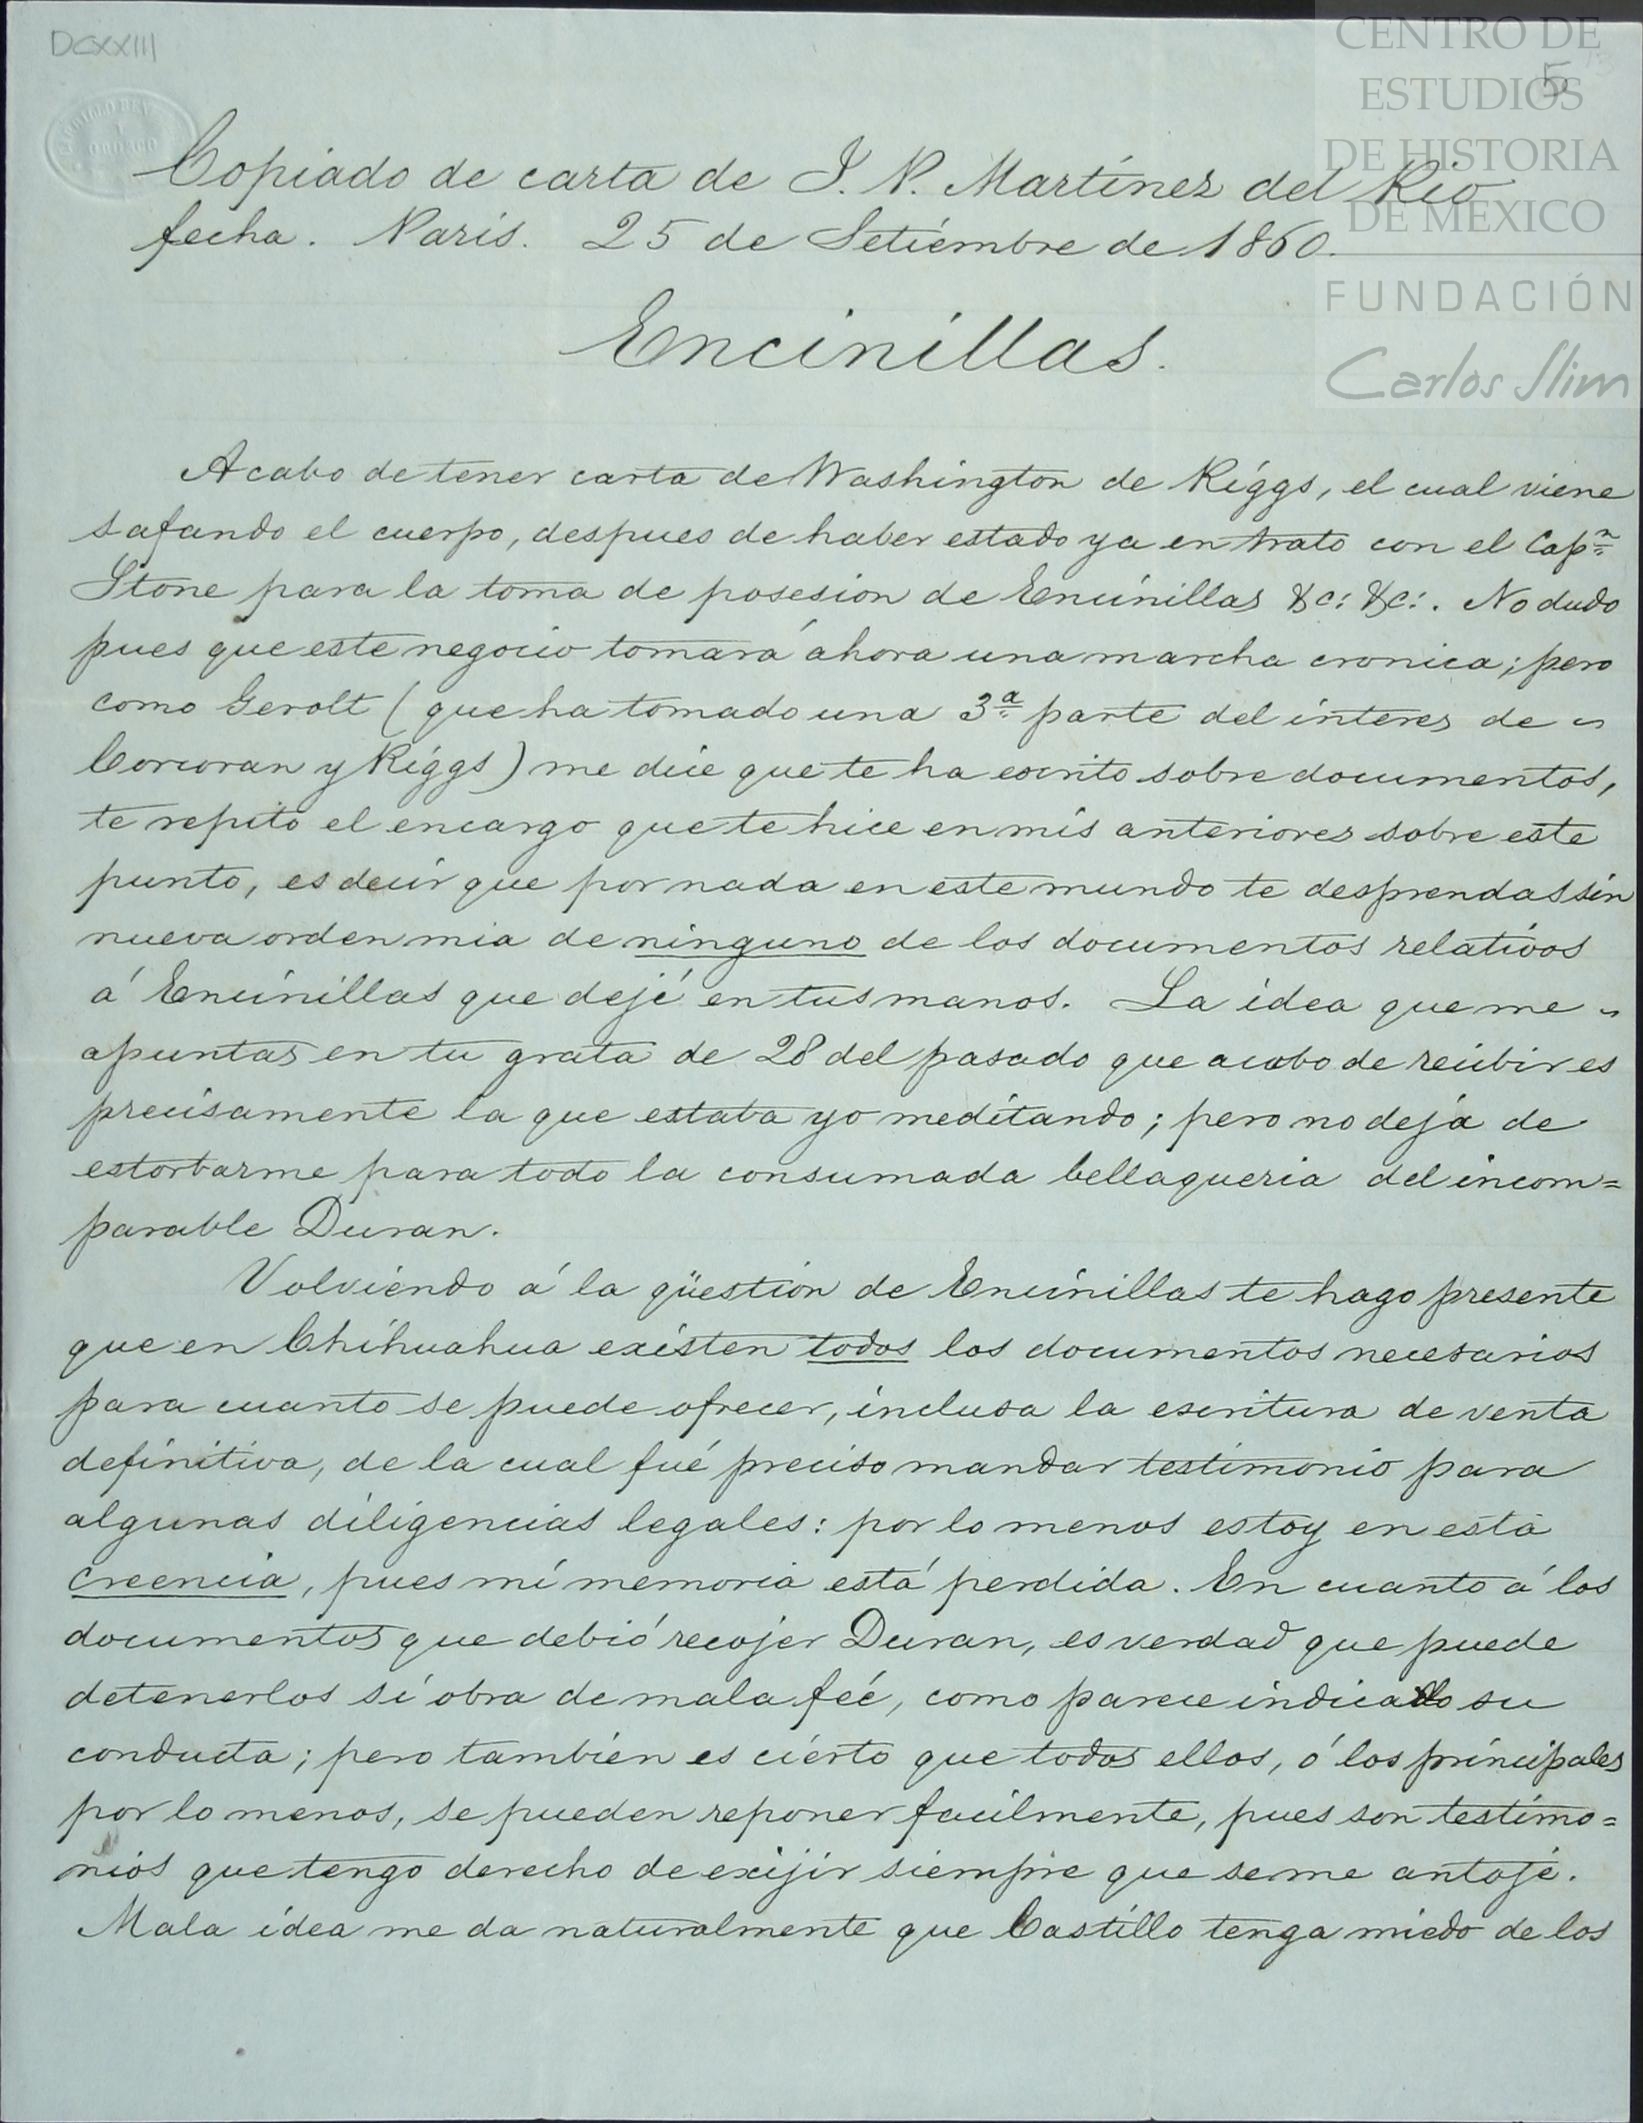 DCXXIII
5
CENTRO DE
ESTUDIOS
DE HISTORIA
DE MEXICO
FUNDACIÓN
Carlos Slim
Copiado de carta de J. P. Martínez del Rio
fecha. Paris. 25 de Setiembre de 1860.
Encinillas.
Acabo de tener carta de Washington de Riggs, el cual viene
safando el cuerpo, despues de haber estado ya en trato con el Cap.n
Stone para la toma de posesion de Encinillas &c: &c:. No dudo
pues que este negocio tomará ahora una marcha cronica; pero
como Gerolt (que ha tomado una 3.a parte del interes de
Corcoran y Riggs) me dice que te ha escrito sobre documentos,
te repito el encargo que te hice en mis anteriores sobre este
punto, es decir que por nada en este mundo te desprendas sin
nueva orden mia de ninguno de los documentos relativos
á Encinillas que dejé en tus manos. La idea que me
apuntas en tu grata de 28 del pasado que acabo de recibir es
precisamente la que estaba yo meditando; pero no deja de
estorbarme para todo la consumada bellaqueria del incom=
parable Duran.
Volviendo á la qüestion de Encinillas te hago presente
que en Chihuahua existen todos los documentos necesarios
para cuanto se puede ofrecer, inclusa la escritura de venta
definitiva, de la cual fué preciso mandar testimonio para
algunas diligencias legales: por lo menos estoy en esta
creencia, pues mi memoria está perdida. En cuanto á los
documentos que debió recojer Duran, es verdad que puede
detenerlos si obra de mala feé, como parece indicarlo su
conducta; pero tambien es cierto que todos ellos, ó los principales
por lo menos, se pueden reponer facilmente, pues son testimo=
nios que tengo derecho de exijir siempre que se me antoje.
Mala idea me da naturalmente que Castillo tenga miedo de los